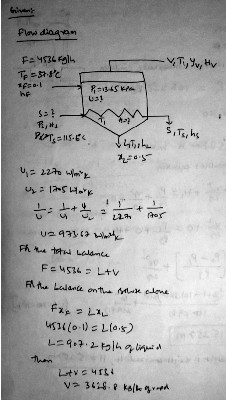 Given:
Flow diagram
F = 4536 kg/h
T_F = 37.8°C
x_F = 0.1
h_F
V, T_1, y_V, H_V
P_1 = 13.65 kPa
U = ?
S = ?
T_S, H_S
T_S = 115.6°C
T_1 A = ?
S, T_S, h_S
L, T_1, h_L
x_L = 0.5
U_1 = 2270 W/m²K
U_2 = 1705 W/m²K
1/U = 1/U_1 + 1/U_2 = 1/2270 + 1/1705
U = 973.67 W/m²K
For the total balance
F = 4536 = L + V
For the balance on the solute alone
F x_F = L x_L
4536 (0.1) = L (0.5)
L = 907.2 kg/h of liquid
Then
L + V = 4536
V = 3628.8 kg/h of vapor